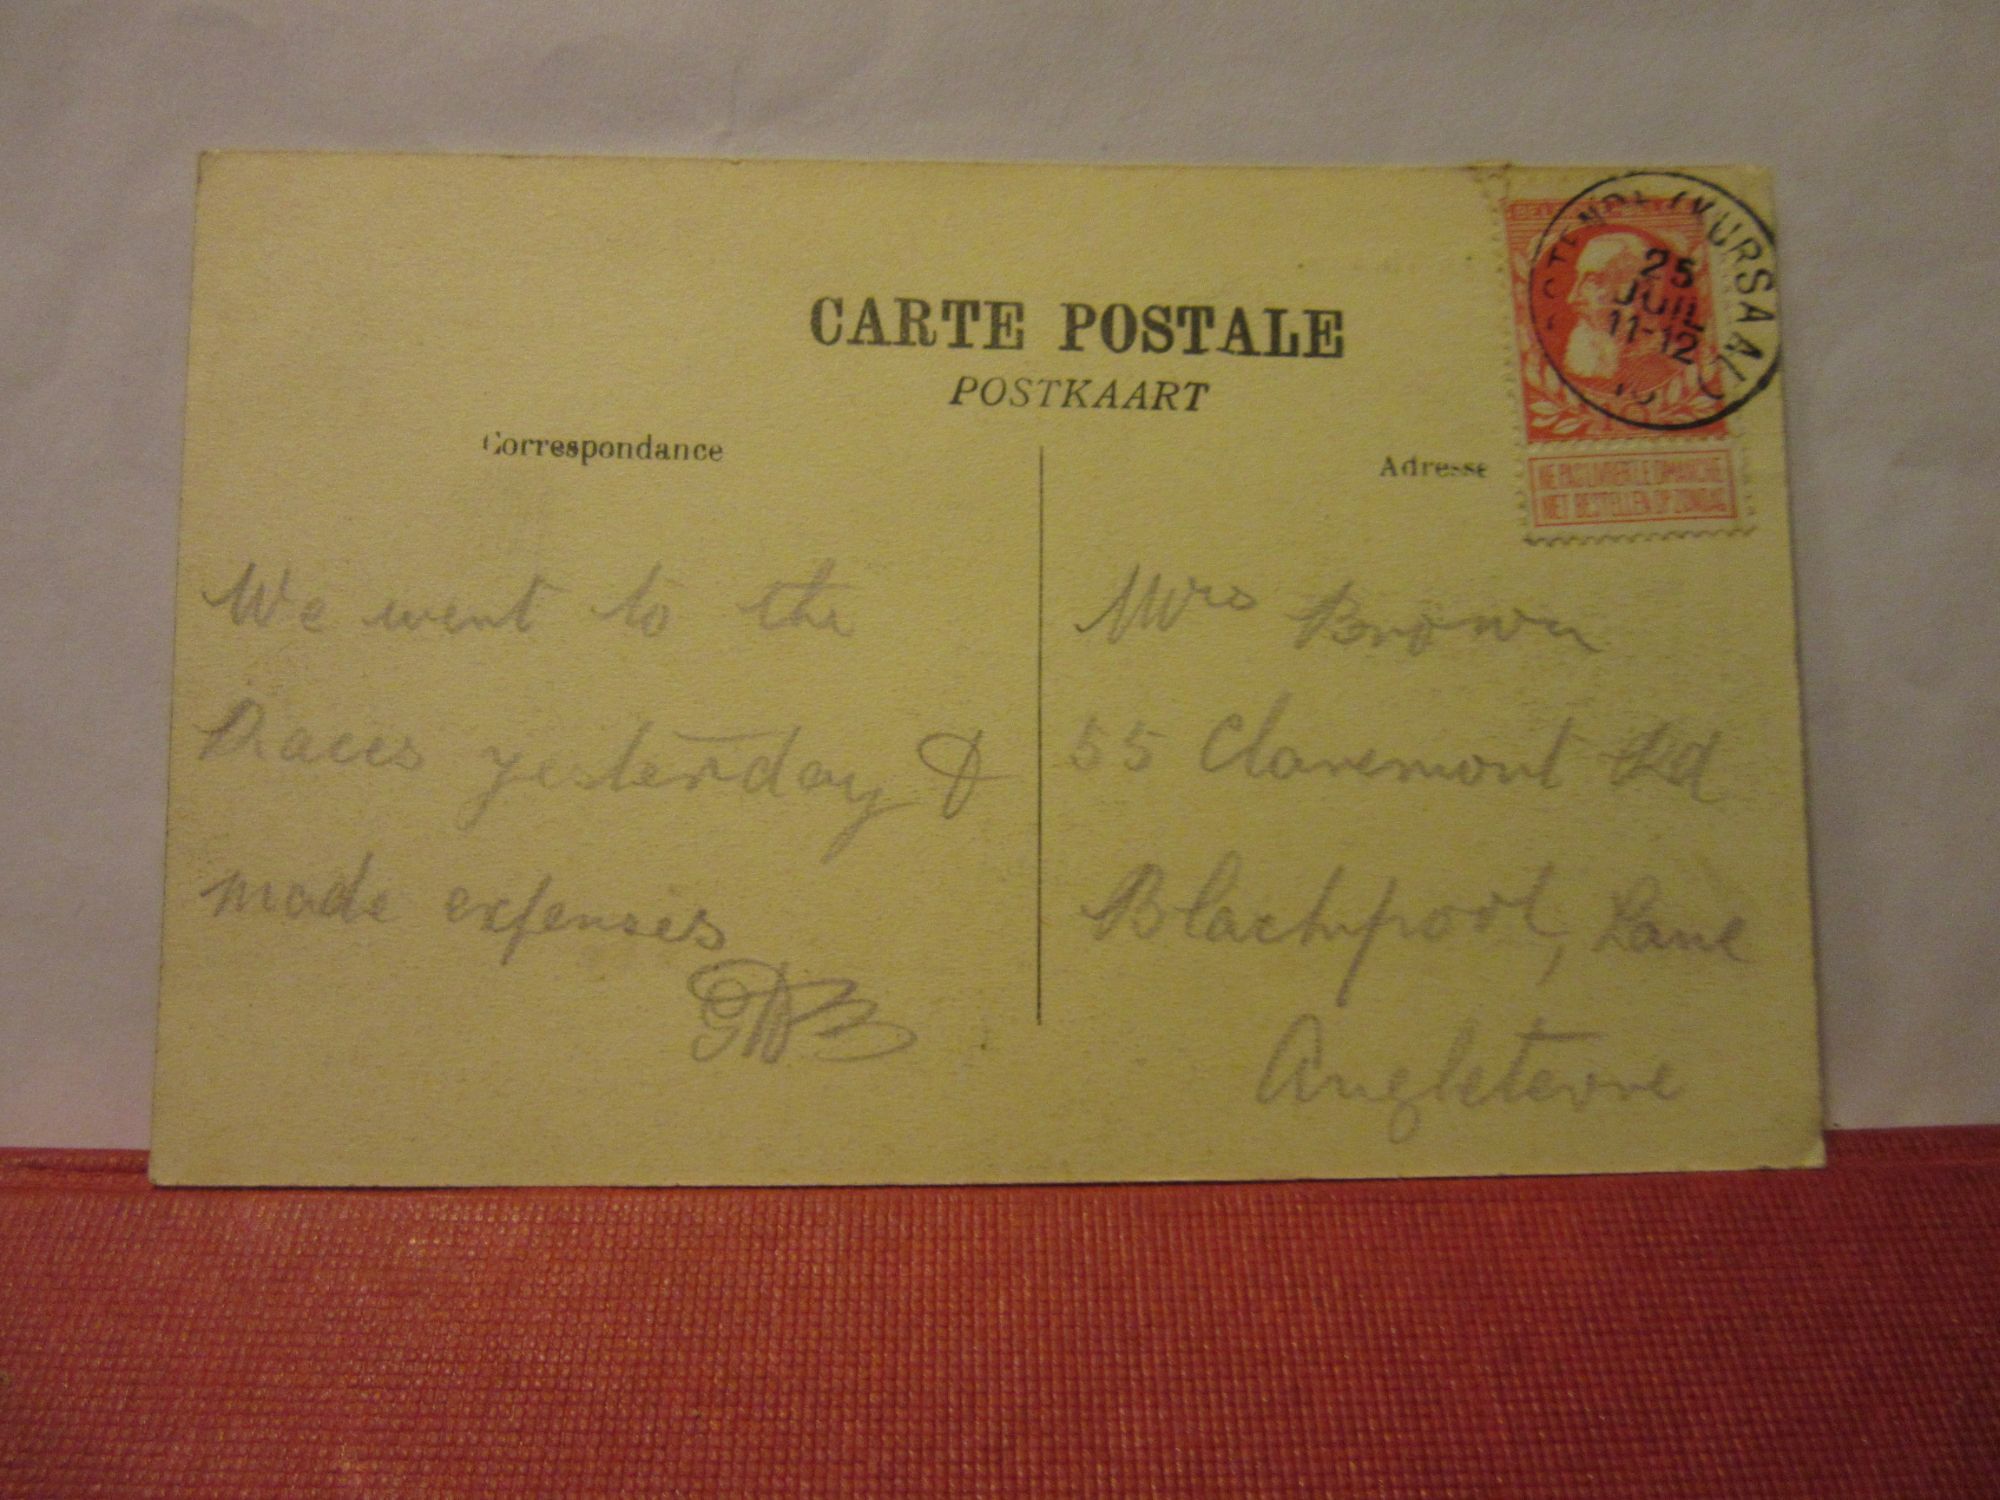 CARTE POSTALE
POSTKAART
Correspondance
Adresse
OSTENDE (KURSAAL)
25
JUIL
11-12
10
NE PAS LIVRER LE DIMANCHE
NIET BESTELLEN OP ZONDAG
We went to the
Races yesterday &
made expenses
Mrs Brown
55 Claremont Rd
Blackpool, Lanc
Angleterre